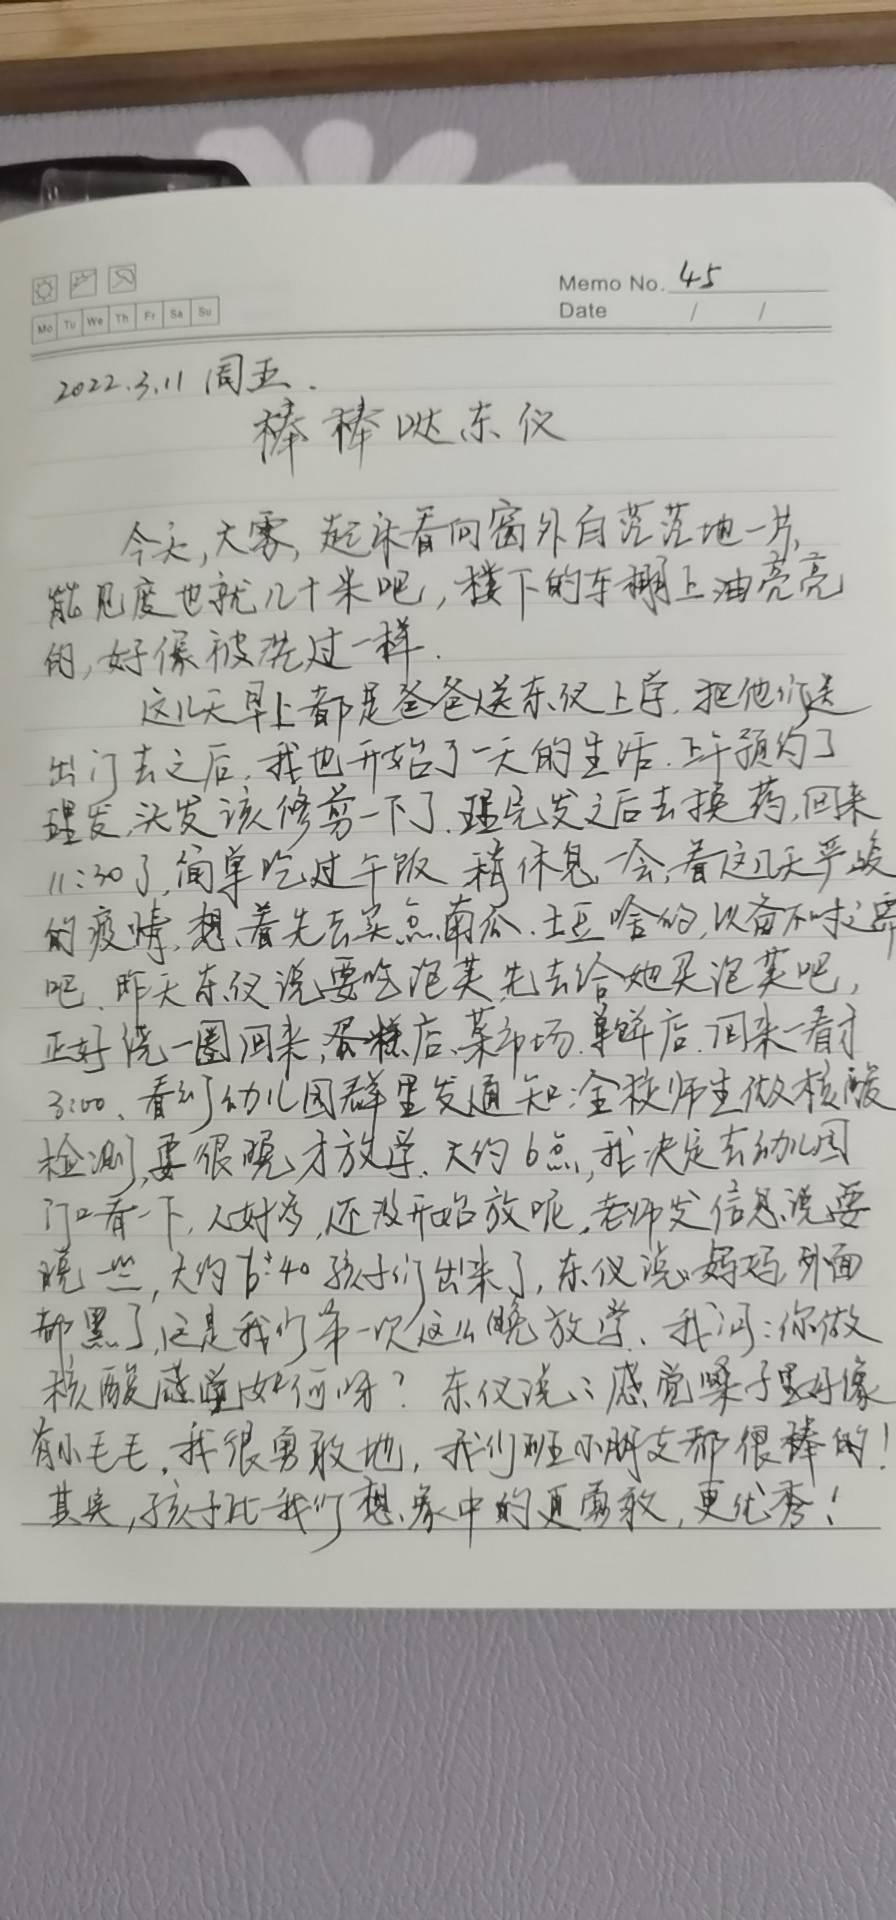 Memo No. 45
Mo Tu We Th Fr Sa Su
Date / /
2022.3.11 周五.
棒棒哒东仪
今天,大雾,起床看向窗外白茫茫地一片,
能见度也就几十米吧,楼下的车棚上油亮亮
的,好像被洗过一样.
这几天早上都是爸爸送东仪上学.把他们送
出门去之后,我也开始了一天的生活.上午预约了
理发,头发该修剪一下了.理完发之后去换药,回来
11:30了,简单吃过午饭 稍休息一会,看这几天严峻
的疫情,想着先去买点南瓜、土豆啥的,以备不时之需
吧、昨天东仪说要吃泡芙,先去给她买泡芙吧,
正好绕一圈回来,蛋糕店、菜市场、单饼店.回来一看才
3:00、看到幼儿园群里发通知:全校师生做核酸
检测,要很晚才放学.大约6点,我决定去幼儿园
门口看一下,人好多,还没开始放呢,老师发信息说要
晚一些,大约6:40孩子们出来了,东仪说:妈妈,外面
都黑了,这是我们第一次这么晚放学、我问:你做
核酸感觉如何呀?东仪说:感觉嗓子里好像
有小毛毛,我很勇敢地,我们班小朋友都很棒的!
其实,孩子比我们想象中的更勇敢,更优秀!